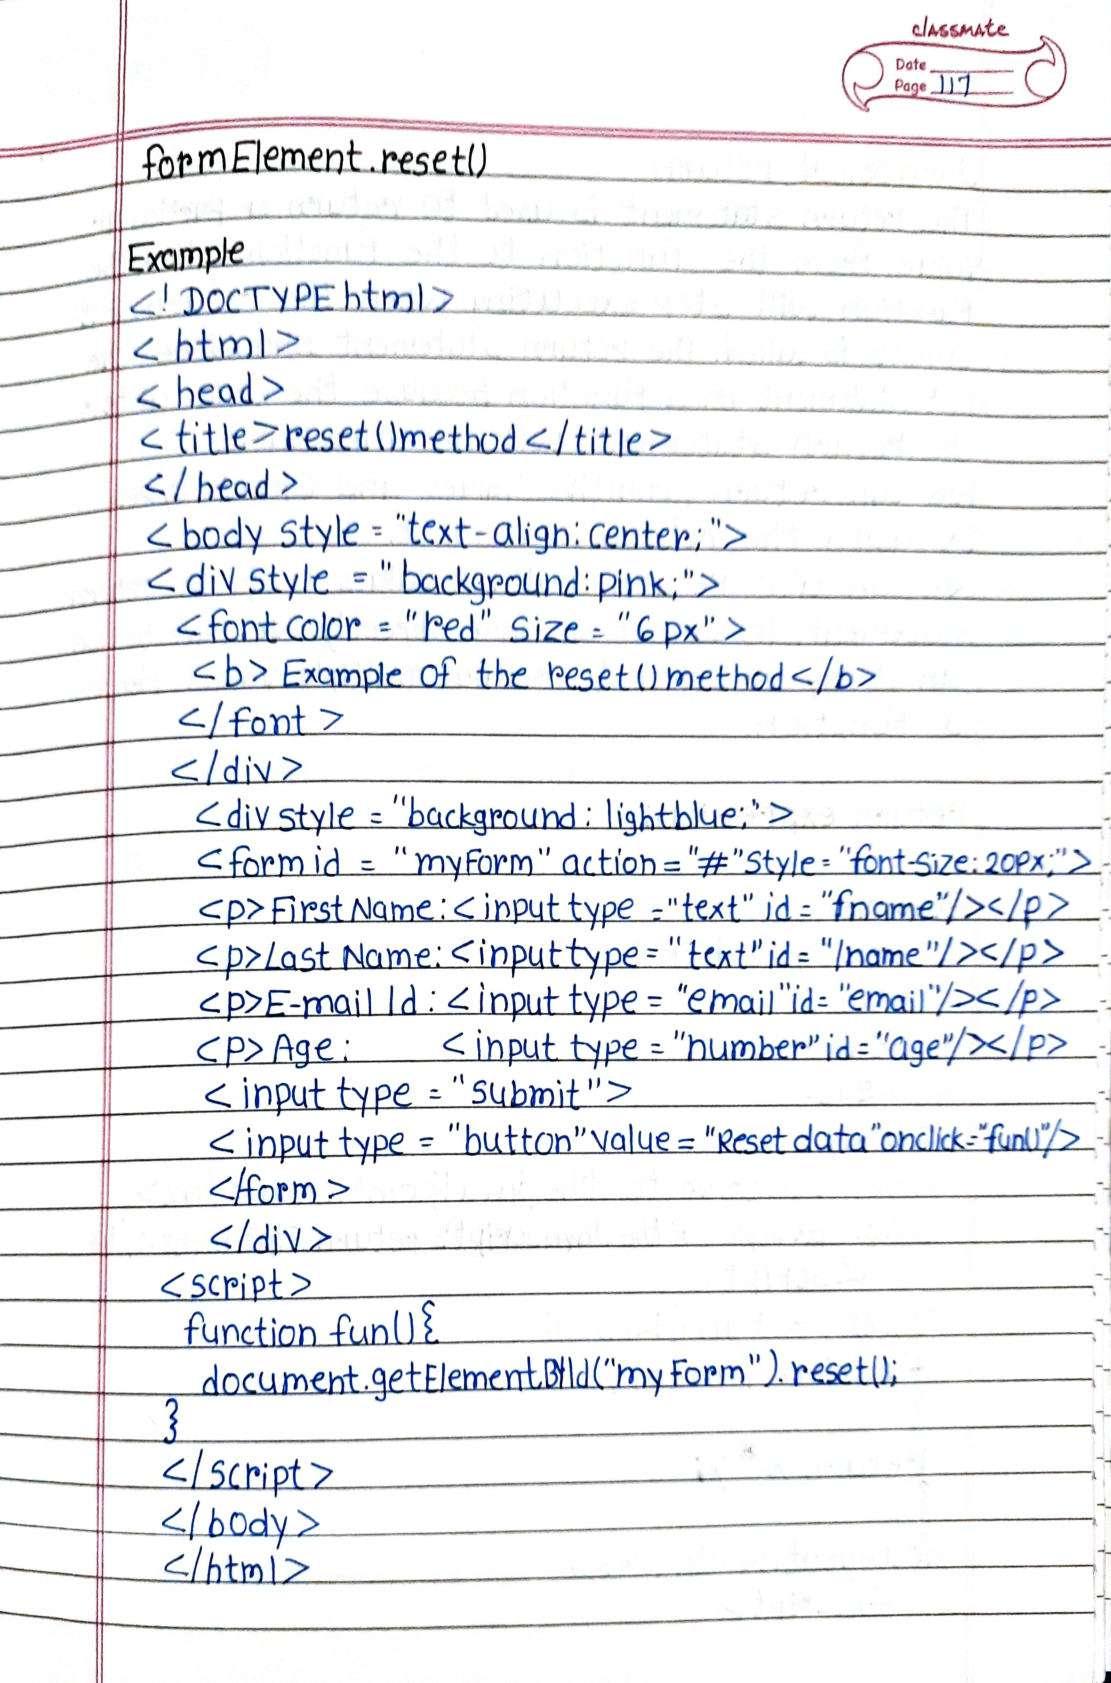 classmate
Date
Page 117
formElement.reset()
Example
<!DOCTYPE html>
<html>
<head>
<title>reset()method</title>
</head>
<body style = "text-align: center;">
<div style = "background: pink;">
<font color = "red" size = "6px">
<b> Example of the reset() method</b>
</font>
</div>
<div style = "background: lightblue;">
<form id = "myForm" action = "#" style = "font-size: 20px;">
<p>First Name: <input type = "text" id = "fname"/></p>
<p>Last Name: <input type = "text" id = "lname"/></p>
<p>E-mail Id: <input type = "email" id = "email"/></p>
<p>Age: <input type = "number" id = "age"/></p>
<input type = "submit">
<input type = "button" value = "Reset data" onclick = "fun()"/>
</form>
</div>
<script>
function fun(){
document.getElementById("myForm").reset();
}
</script>
</body>
</html>